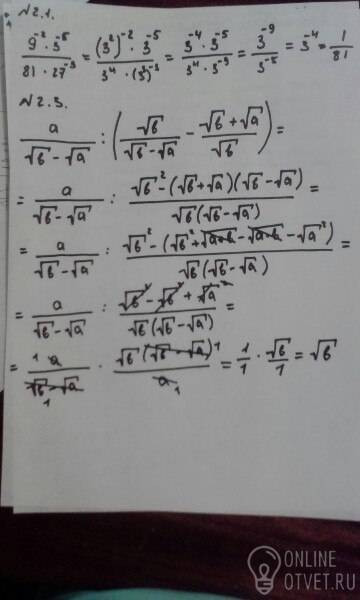 N2.1.
9⁻² · 3⁻⁵ / 81 · 27⁻³ = (3²)⁻² · 3⁻⁵ / 3⁴ · (3³)⁻³ = 3⁻⁴ · 3⁻⁵ / 3⁴ · 3⁻⁹ = 3⁻⁹ / 3⁻⁵ = 3⁻⁴ = 1/81
N2.3.
a / √b - √a : (√b / √b - √a - √b + √a / √b) =
= a / √b - √a : √b² - (√b + √a)(√b - √a) / √b(√b - √a) =
= a / √b - √a : √b² - (√b² + √a·b - √a·b - √a²) / √b(√b - √a) =
= a / √b - √a : √b² - √b² + √a² / √b(√b - √a) =
= ¹ a / √b - √a ₁ · √b(√b - √a) ¹ / a ₁ = 1/1 · √b/1 = √b
ONLINE
OTVET.RU